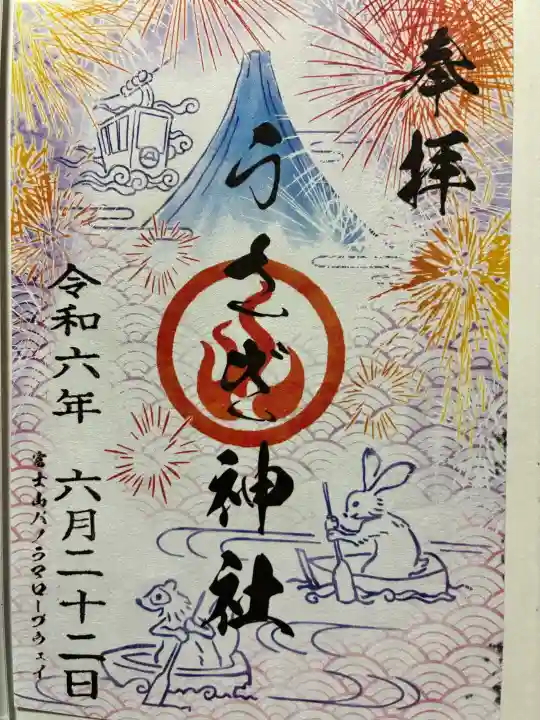 奉拝
うさぎ神社
令和六年 六月二十二日
富士山パノラマロープウェイ